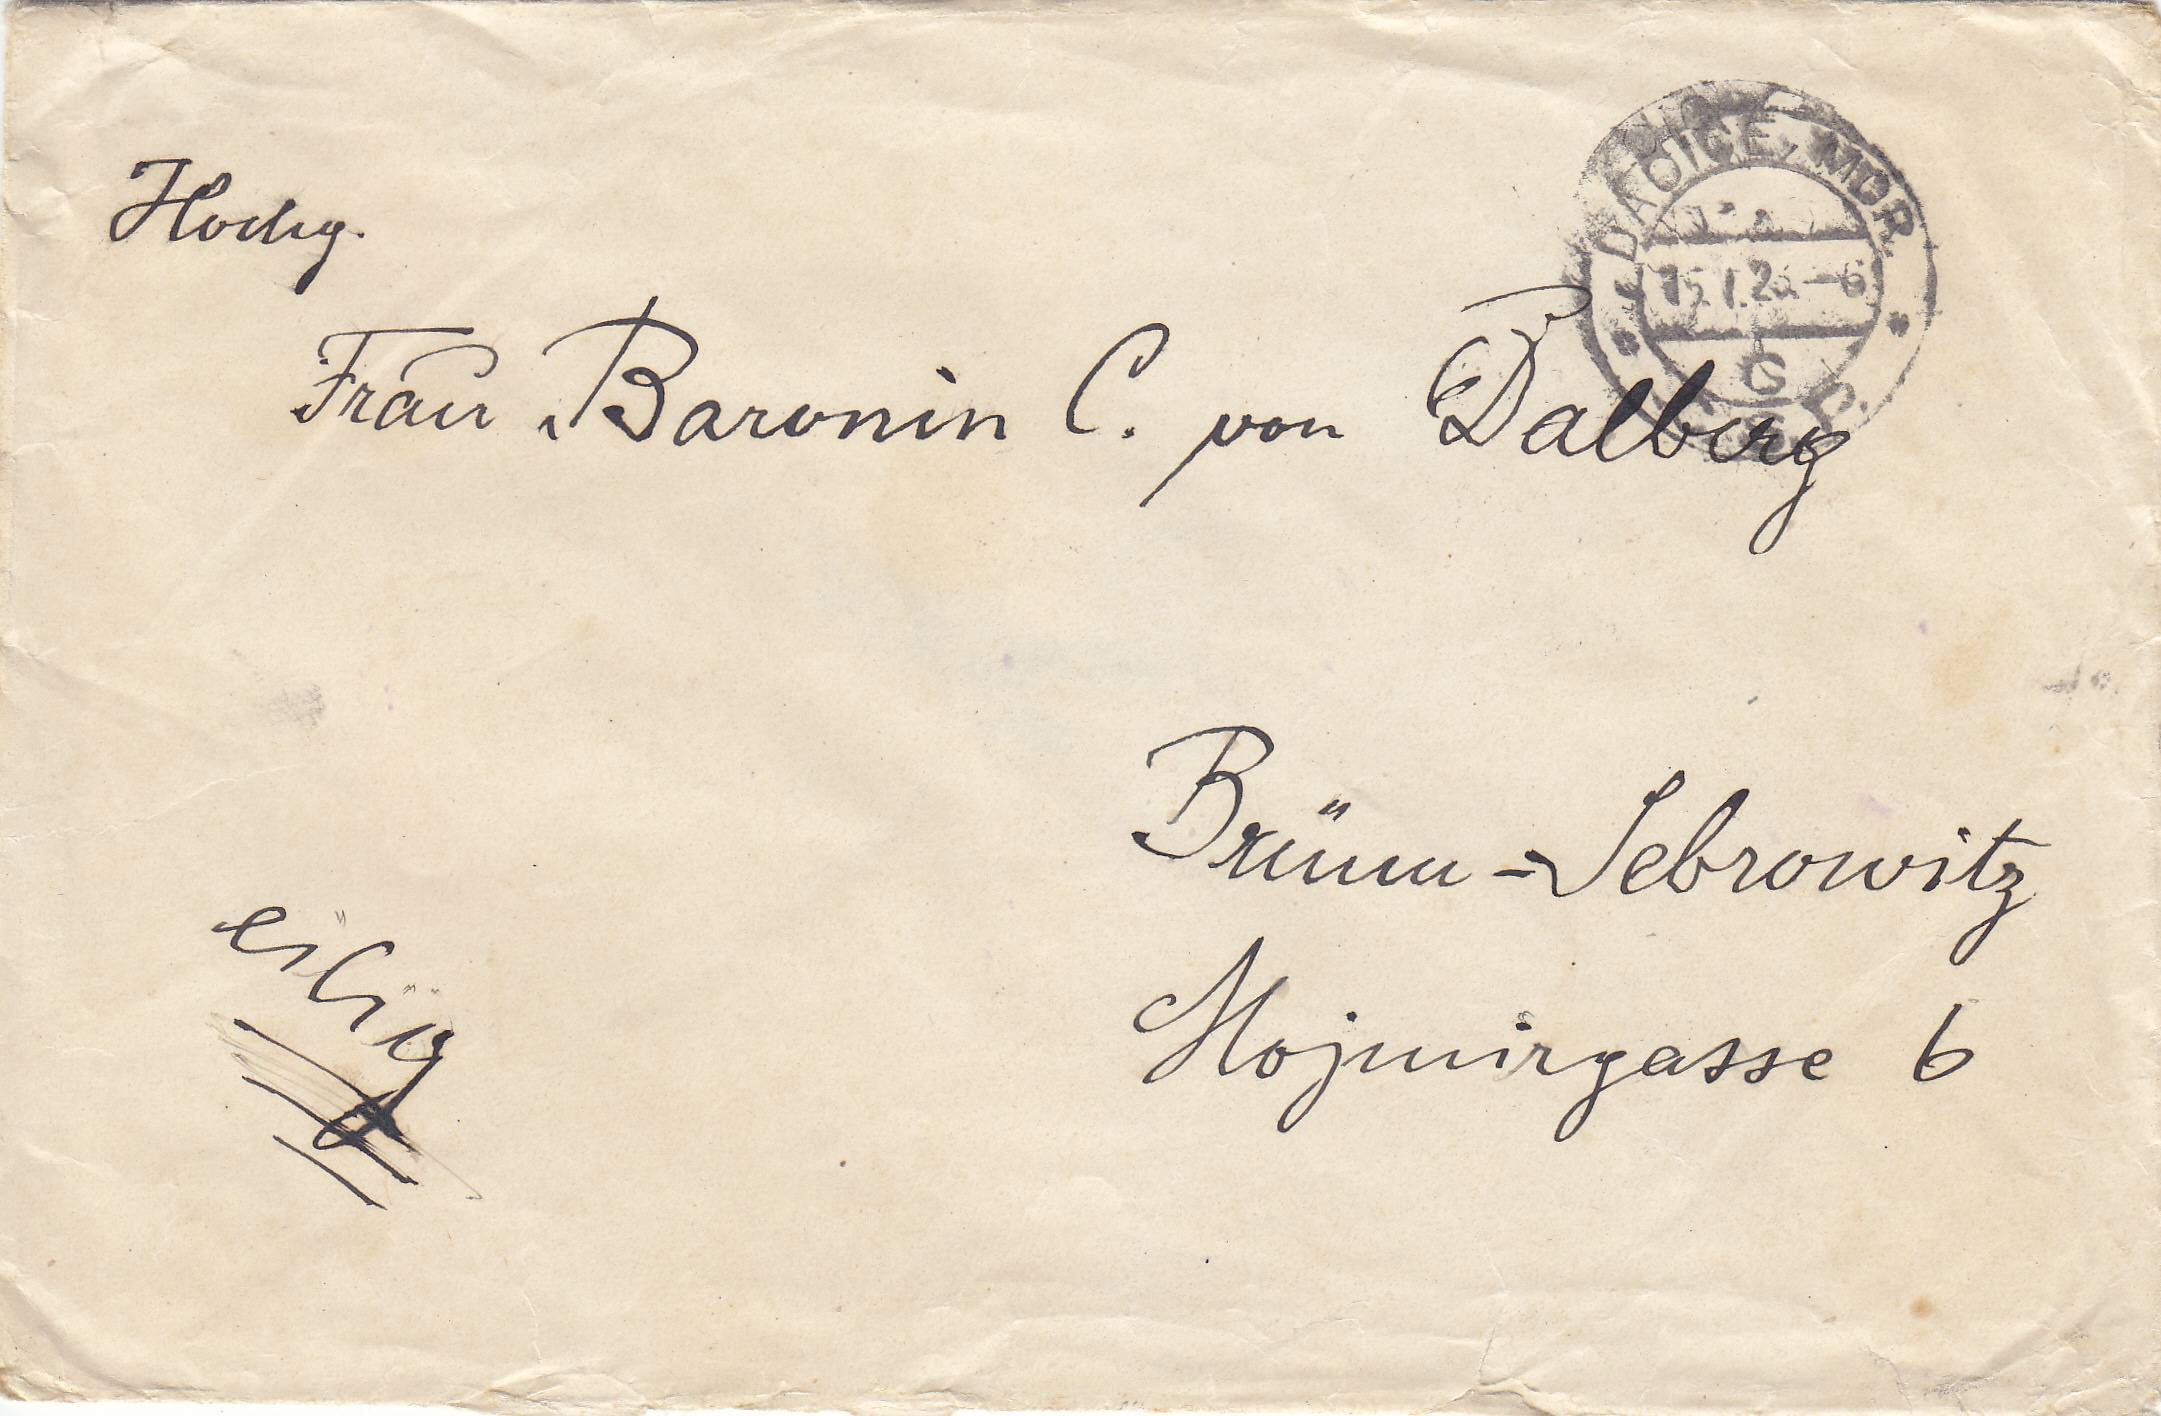 Hochg.
Frau Baronin C. von Dalberg
DAČICE, MOR.
Brünn - Sebrowitz
Mojmirgasse 6
eilig